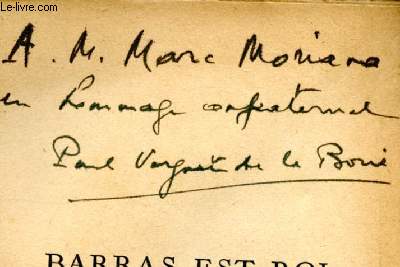 Le-Livre.com
A. M. Marc Moriana
en hommage confraternel
Paul Vergnet de la Borie
BARRAS EST ROI